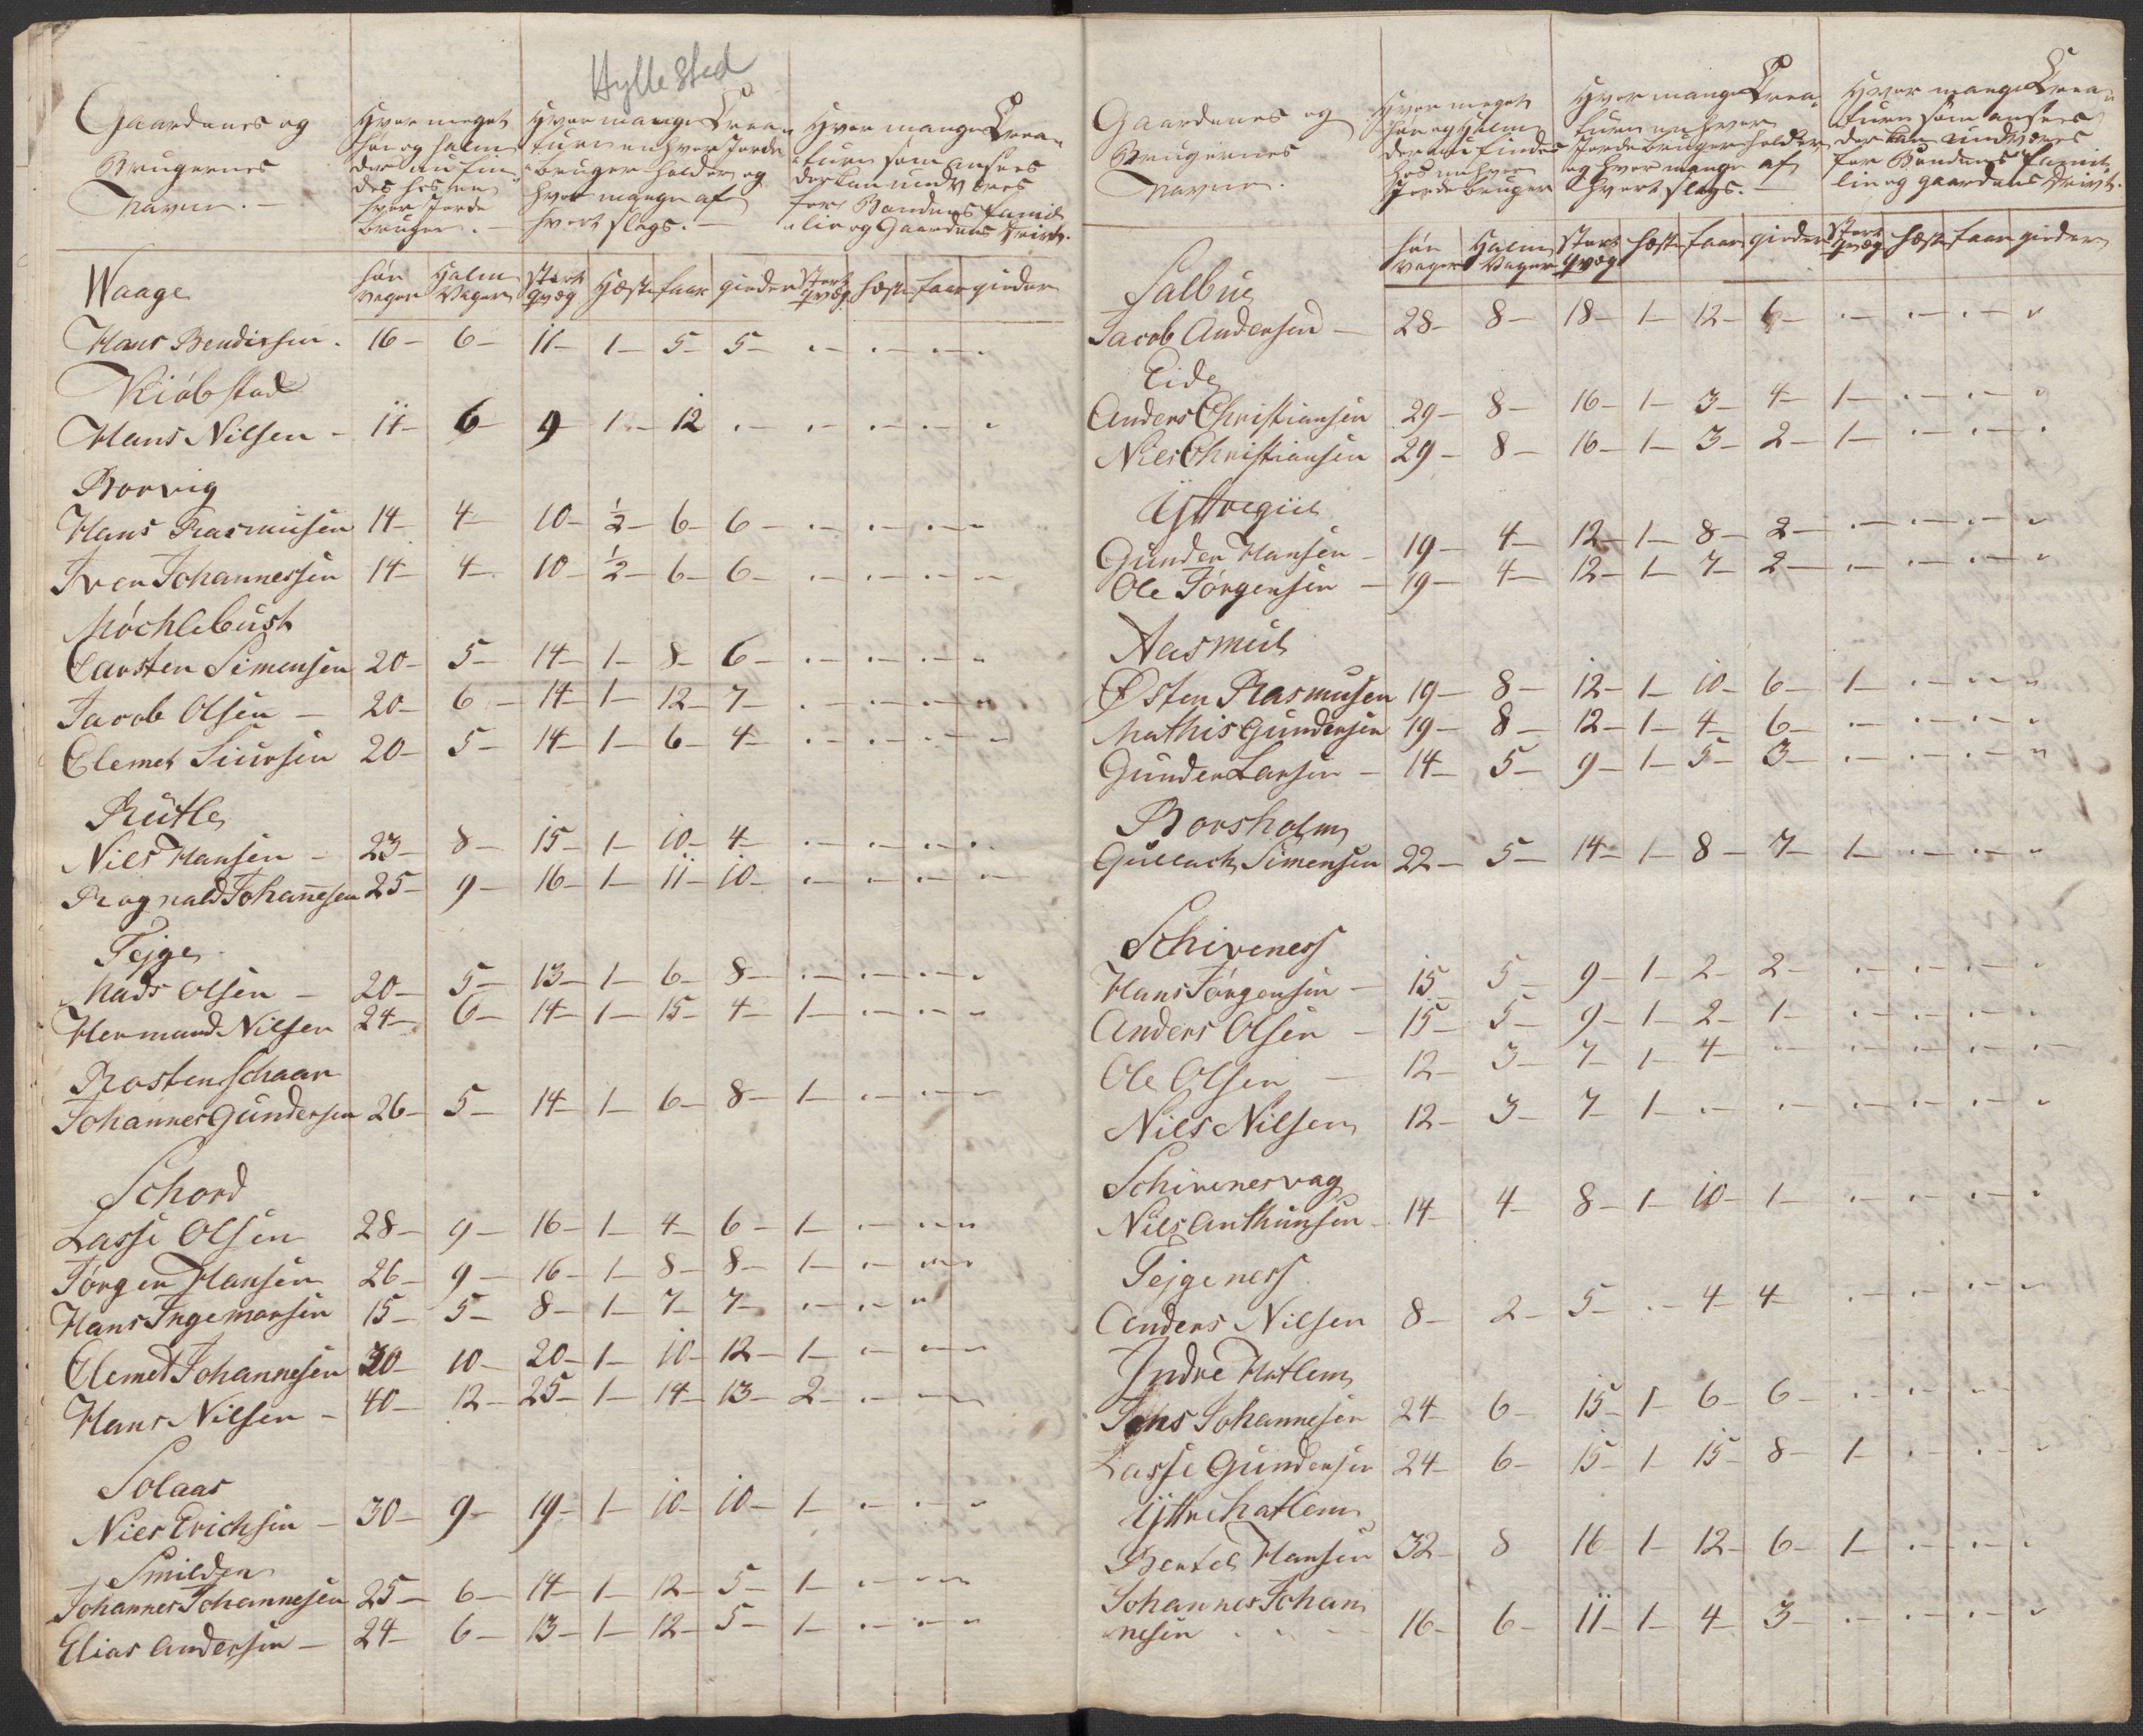 Hyllestad
Gaardenes og
Brugernes
Navne. —
Hvor meget
høe og halm
der nu fin
des hos en
hver Jorde
bruger. —
Hvor mange Krea-
turer en hver Jorde
bruger holder og
hvor mange af
hvert slags. —
Hvor mange Krea-
turer som ansees
der kan undværes
for Bondens Fami-
lie og Gaardens Drivt.
høe Vager | Halm Vager | Stort qvæg | Hæste | faar | gieder | Stort qvæg | hæste | faar | gieder
Waage
Hans Bendixsen . 16 – 6 – 11 – 1 – 5 – 5 – . – . – . – .
Kiöbstad
Hans Nilsen – 11 – 6 9 1 – 12 . – . – . – . – .
Borvig
Hans Rasmusen 14 – 4 – 10 – ½ – 6 – 6 – . – . – . – .
Iver Johannessen 14 – 4 – 10 – ½ – 6 – 6 – . – . – . – .
Möchlebust
Carsten Simensen 20 – 5 – 14 – 1 – 8 – 6 – . – . – . – .
Jacob Olsen – 20 – 6 – 14 – 1 – 12 – 7 – . – . – . – .
Clemet Siursen 20 – 5 – 14 – 1 – 6 – 4 – . – . – . – .
Rutle
Niels Hansen – 23 – 8 – 15 – 1 – 10 – 4 – . – . – . – .
Rognald Johannesen 25 – 9 – 16 – 1 – 11 – 10 – . – . – . – .
Tejge
Mads Olsen – 20 – 5 – 13 – 1 – 6 – 8 – . – . – . – .
Hermand Nilsen 24 – 6 – 14 – 1 – 15 – 4 – 1 – . – . – .
Rostenschaar
Johannes Gundersen 26 – 5 – 14 – 1 – 6 – 8 – 1 – . – . – .
Schord
Lasse Olsen 28 – 9 – 16 – 1 – 4 – 6 – 1 – . – . – .
Jörgen Hansen 26 – 9 – 16 – 1 – 8 – 8 – 1 – . – . – .
Hans Ingemorsen 15 – 5 – 8 – 1 – 7 – 7 – . – . – .
Clemet Johannesen 30 – 10 – 20 – 1 – 10 – 12 – 1 – . – . – .
Hans Nilsen – 40 – 12 – 25 – 1 – 14 – 13 – 2 – . – . –
Solaas
Nies Erichsen – 30 – 9 – 19 – 1 – 10 – 10 – 1 – . – . – .
Smilden
Johannes Johannesen 25 – 6 – 14 – 1 – 12 – 5 – 1 – . – . – .
Elias Andersen – 24 – 6 – 13 – 1 – 12 – 5 – 1 – . – . – .
Gaardenes og
Brugernes
Navne.
Hvor meget
høe og Halm
der nu findes
hos en hver
Jordebruger
Hvor mange Krea-
turer en hver
Jordebruger holder
og hvor mange af
hvert slags. —
Hvor mange Krea-
turer som ansees
der kan undværes
for Bondens Fami-
lie og gaardens Drivt.
høe vager | Halm Vager | Stort qvæg | hæste | faar | gieder | Stort qvæg | hæste | faar | gieder
Salbue
Jacob Andersen – 28 – 8 – 18 – 1 – 12 – 6 – . – . – . – .
Eide
Anders Christiansen 29 – 8 – 16 – 1 – 3 – 4 – 1 – . – . – .
Niels Christiansen 29 – 8 – 16 – 1 – 3 – 2 – 1 – . – . – .
Gunder Hansen – 19 – 4 – 12 – 1 – 8 – 2 – . – . – . – .
Ole Jörgensen – 19 – 4 – 12 – 1 – 7 – 2 – . – . – . – .
Aasmul
Østen Rasmusen 19 – 8 – 12 – 1 – 10 – 6 – 1 – . – . – .
Mathis Gundersen 19 – 8 – 12 – 1 – 4 – 6 – . – . – . – .
Gunder Larsen – 14 – 5 – 9 – 1 – 5 – 3 – . – . – . – .
Borsholm
Gullach Simensen 22 – 5 – 14 – 1 – 8 – 7 – 1 – . – . – .
Schiveness
Hans Jörgensen – 15 5 – 9 – 1 – 2 – 2 – . – . – . – .
Anders Olsen – 15 – 5 – 9 – 1 – 2 – 1 – . – . – . – .
Ole Olsen – 12 – 3 – 7 – 1 – 4 – . – . – . – . – .
Niels Nilsen 12 – 3 – 7 – 1 – . – . – . – . – . – .
Schivenesvag
Niels Anthunsen – 14 – 4 – 8 – 1 – 10 – 1 – . – . – . – .
Tejgeness
Anders Nilsen 8 – 2 – 5 – . – 4 – 4 – . – . – . – .
Indre Hatlem
Jens Johannesen 24 – 6 – 15 – 1 – 6 – 6 – . – . – . –
Lasse Gundersen 24 – 6 – 15 – 1 – 15 – 8 – 1 – . – . – .
Ÿttre hatlem
Bentel Hansen 32 – 8 16 – 1 – 12 – 6 – 1 – . – . – .
Johannes Johan
nesen . . – 16 – 6 – 11 – 1 – 4 – 3 – . – . – . – .